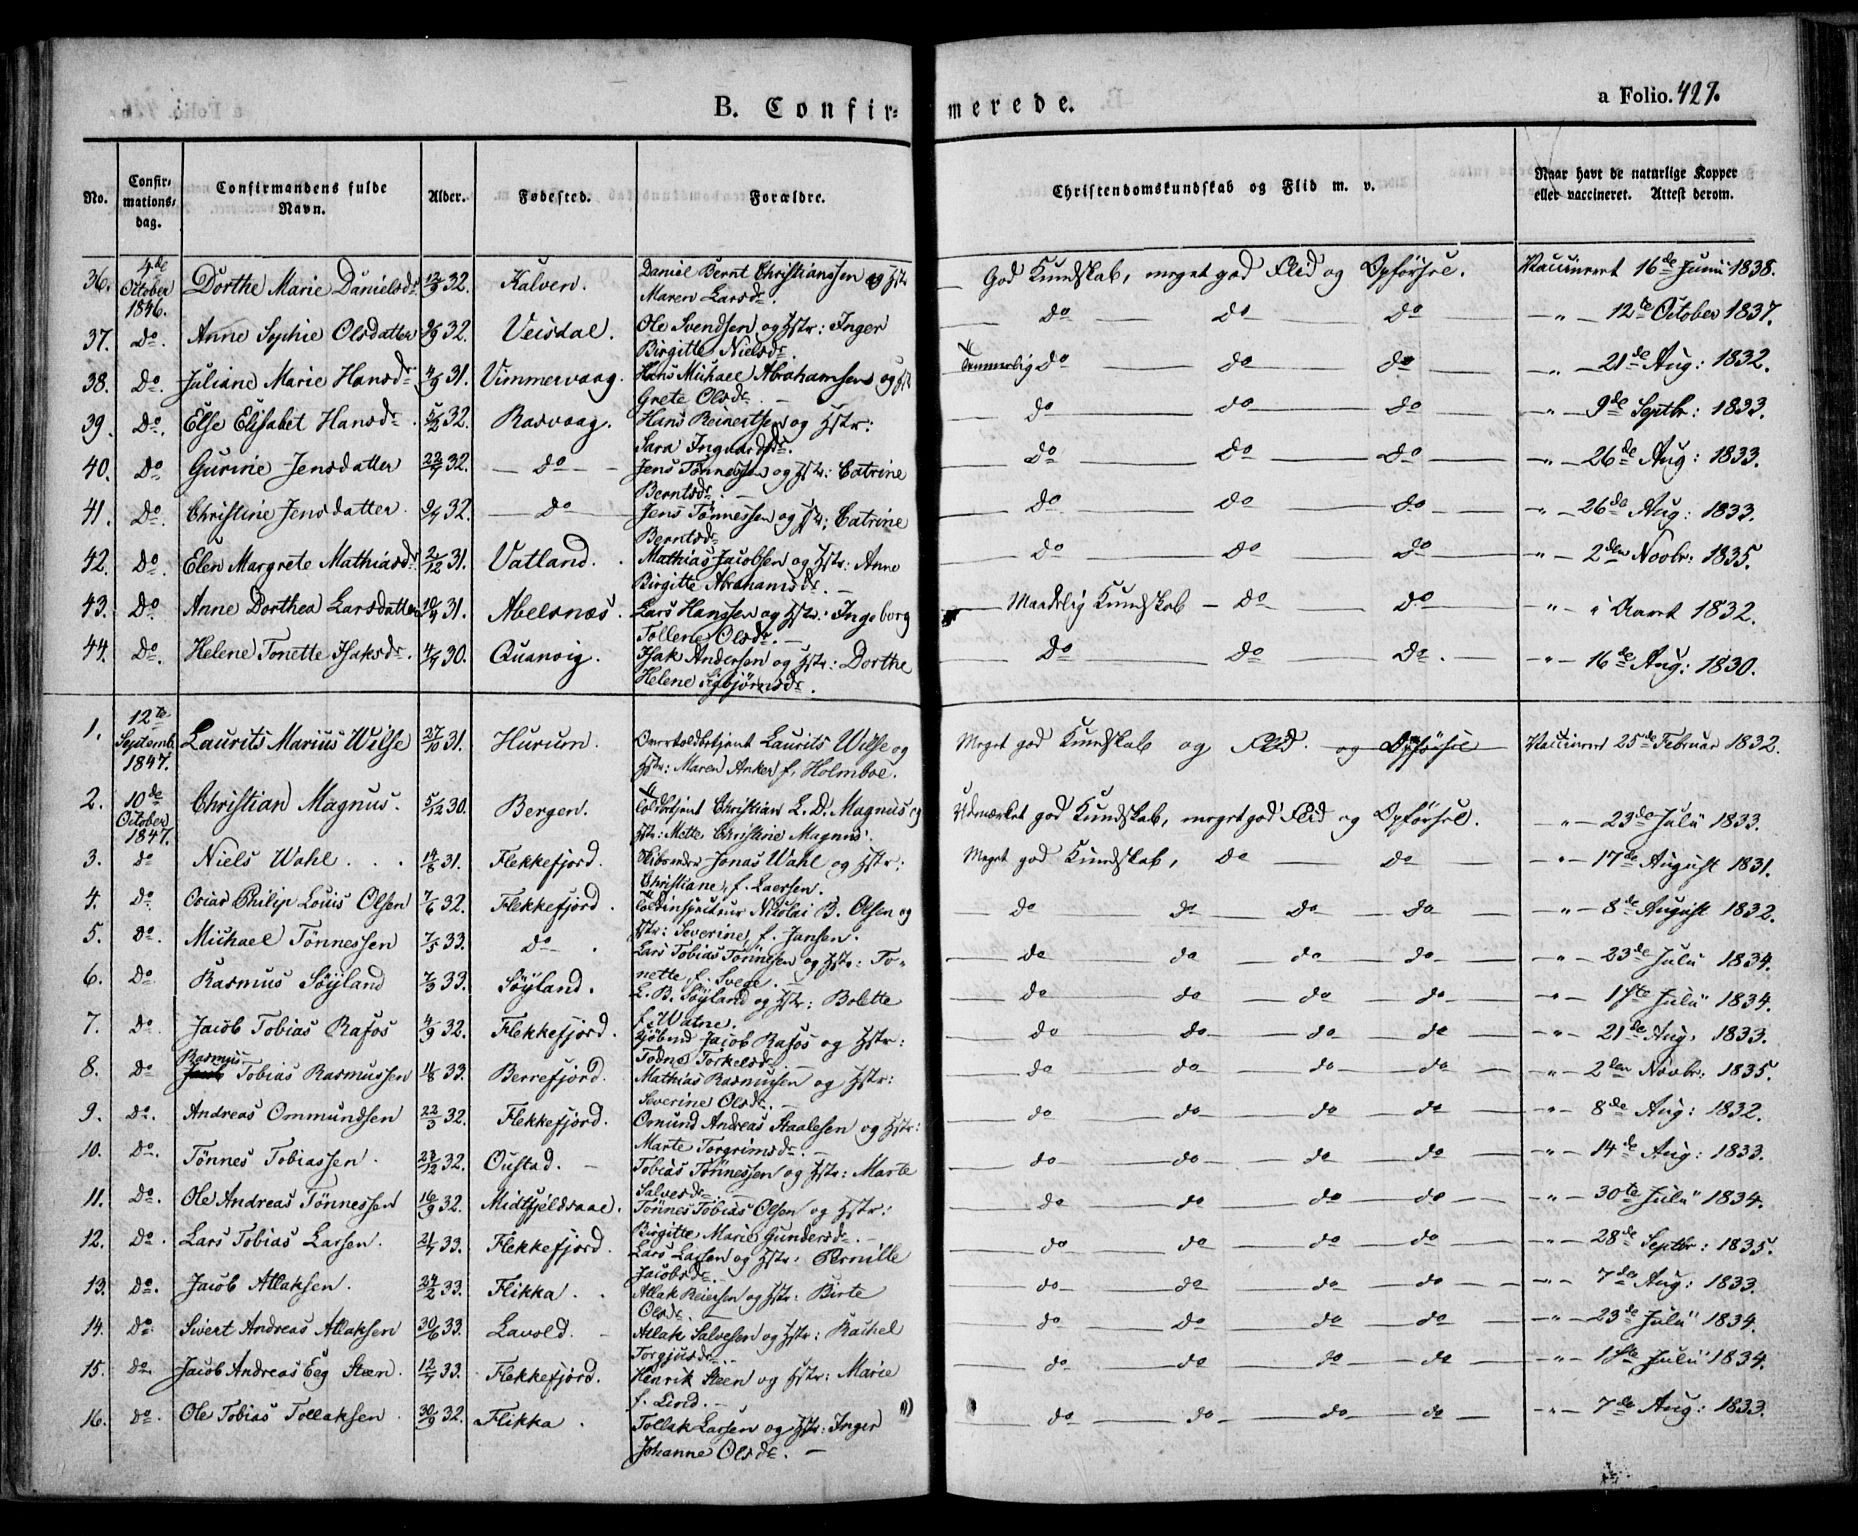 B. Confirmerede.
a Folio. 427.
No. Confirmationsdag. Confirmandens fulde Navn. Alder. Fødested. Forældre. Christendomskundskab og Flid m. v. Naar havt de naturlige Kopper eller vaccineret. Attest derom.
36. 4de October 1846. Dorthe Marie Danielsdr 32. Kalven. Daniel Bernt Christianssen og Hstr Maren Larsdr. God Kundskab, meget god Flid og Opførsel. Vaccineret 16de Junii 1838.
37. Do. Anne Sophie Olsdatter 32. Veisdal. Ole Svendsen og Hstr: Inger Birgitte Nielsdr. do do do " 12te October 1837.
38. Do. Juliane Marie Hansdr 4/9 31. Vimmervaag. Hans Michael Abrahamsen og Hstr Grete Olsdr. Temmelig do do do " 21de Aug: 1832.
39. Do. Else Elisabet Hansdr. 5/2 32. Rasvaag. Hans Reinertsen og Hstr: Sara Ingvardsdr. do do do " 9de Septbr: 1833.
40. Do. Gurine Jensdatter 22/7 32. do Jens Tønnessen og Hstr: Catrine Berntsdr. do do do " 26de Aug: 1833.
41. Do. Christine Jensdatter 32. do Jens Tønnessen og Hstr; Catrine Berntsdr. do do do " 26de Aug: 1833.
42. Do. Elen Margrete Mathiasdr 2/12 31. Vatland. Mathias Jacobsen og Hstr: Anne Birgitte Abrahamsdr. do do do " 2den Novbr: 1835.
43. Do. Anne Dorthea Larsdatter 31. Abelsnæs. Lars Hanssen og Hstr: Ingeborg Tollene Olsdr. Maadelig Kundskab do do " i Aaret 1832.
44. Do. Helene Tonette Isaksdr. 30. Quanvig. Isak Andersen og Hstr: Dorthe Helene Sigbjørnsdr. Do do Do. " 16de Aug: 1830.
1. 12te Septemb. 1847. Laurits Marius Wilse 27/10 31. Hurum. Overtoldbetjent Laurits Wilse og Hstr: Maren Anker f. Holmboe. Meget god Kundskab og Flid. og Opførsel Vaccineret 25de Februar 1832.
2. 10de October 1847. Christian Magnus. 5/12 30. Bergen. Toldbetjent Christian L. D. Magnus og Hstr: Mette Christine Magnus. Udmærket god Kundskab, meget god Flid og Opførsel. " 23de Julii 1833.
3. do Niels Wahl. 14/8 31. Flekkefjord. Jonas Wahl og Hstr: Christiane, f. Laersen. Meget god Kundskab, do do " 17de August 1831.
4. do Philip Louis Olsen 7/6 32. Flekkefjord. Toldinspecteur Nicolai B. Olsen og Hstr: Severine, f. Jansen. do do do do " 8de August 1832.
5. do. Michael Tønnessen 7/5 33. do. Lars Tobias Tønnesen og Hstr: Tonette, f. Svege. do do do do " 23de Julii 1834.
6. Do Rasmus Søyland 7/3 33. Søyland. L. B. Søyland og Hstr: Bolette f. Watne. do do do do " 1ste Julii 1834.
7. Do. Jacob Tobias Rafos 4/9 32. Flekkefjord. Kjøbmd Jacob Rafos og Hstr: Todne Torkelsdr. do do do do " 21de Aug: 1833.
8. Do Rasmus Tobias Rasmussen 33. Berrefjord. Mathias Rasmussen og Hstr: Severine Olsdr. do do do do " 2den Novbr: 1835.
9. Do. Andreas Ommundsen 22/3 32. Flekkefjord. Omund Andreas Staalesen og Hstr: Marte Torgrimsdr. do do do do " 8de Aug: 1832.
10. Do. Tønnes Tobiassen. 32. Oustad. Tobias Tønnessen og Hstr: Marte Salvesdr. do do do do " 14de Aug: 1833.
11. Do. Ole Andreas Tønnessen 16/9 32. Midtfjeldsaae. Tønnes Tobias Olsen og Hstr: Birgitte Marie Gundersdr. do do do do " 30te Julii 1834.
12. Do. Lars Tobias Larsen. 21/7 33. Flekkefjord. Lars Larsen og Hstr: Pernille Jacobsdr. do do do do " 28de Septbr: 1835.
13. Do. Jacob Atlaksen. 24/2 33. Flikka. Atlak Reiersen og Hstr: Birte Olsdr. do do do do " 7de Aug: 1833.
14. Do. Sivert Andreas Atlaksen 30/6 33. Lavold. Atlak Salvesen og Hstr: Rachel Torgjusdr. do Do do do " 23de Julii 1834.
15. do. Jacob Andreas Eeg Steen. 12/7 33. Flekkefjord. Henrik Steen og Hstr: Marie f. Lind. do do do do " 1ste Julii 1834.
16. do. Ole Tobias Tollaksen. 30/9 32. Flikka. Tollak Larsen og Hstr: Inger Johanne Olsdr. do do do do " 7de Aug: 1833.